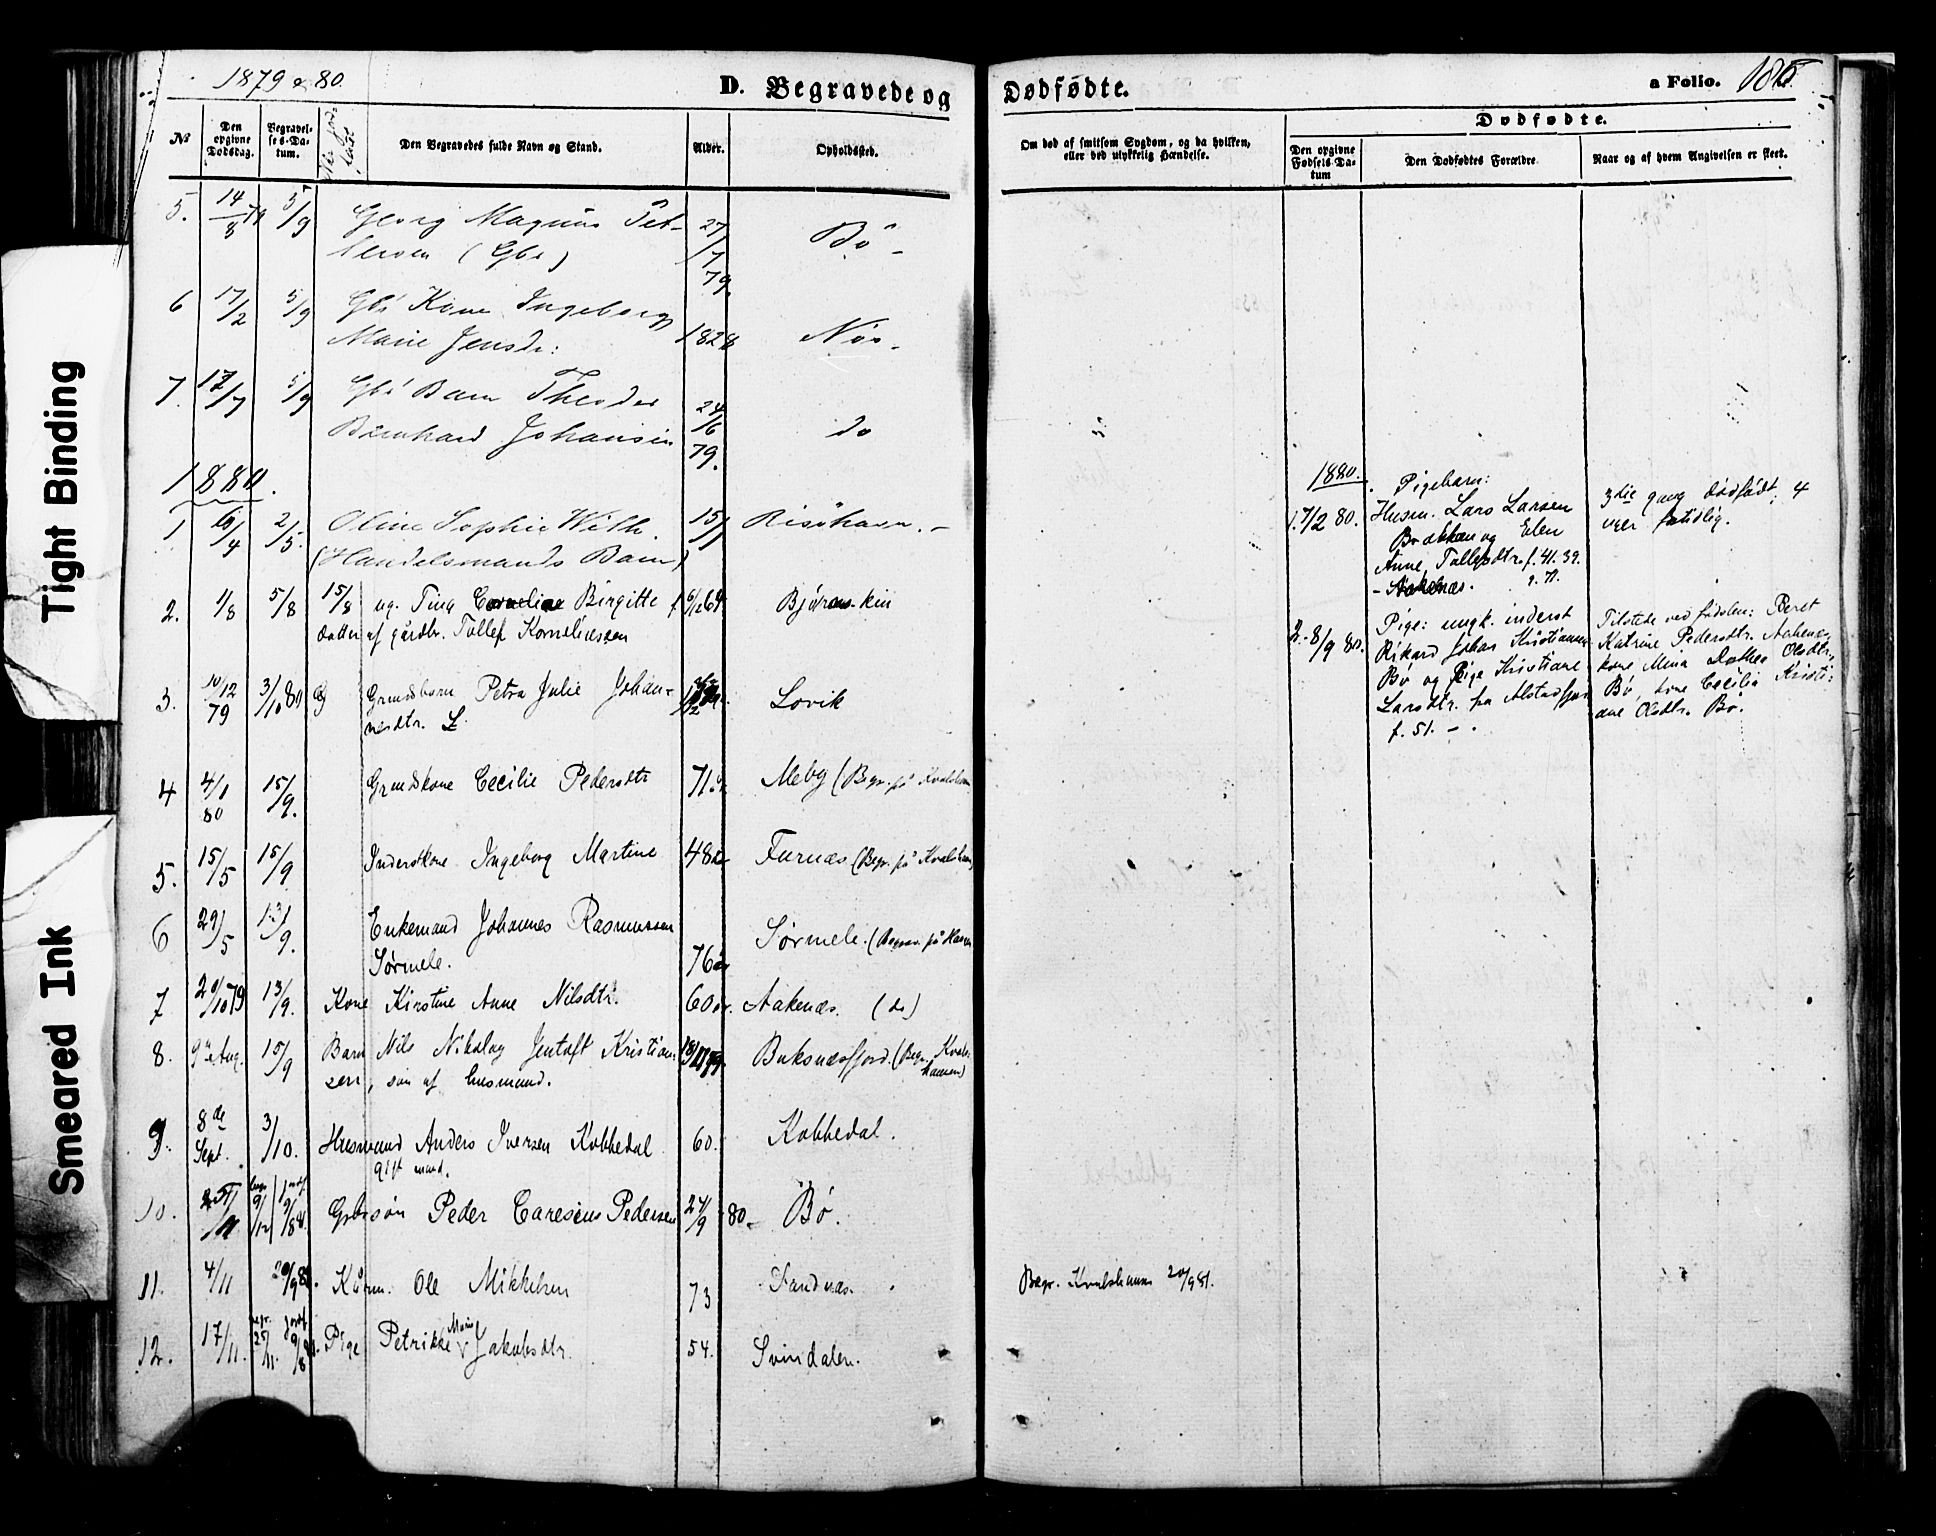 1879 & 80.
D. Begravede og Dødfødte.
a Folio. 185
№
Den opgivne Dødsdag.
Begravelses-Datum.
Den Begravedes fulde Navn og Stand.
Alder.
Opholdssted.
Om død af smitsom Sygdom, og da hvilken, eller ved ulykkelig Hændelse.
Dødfødte.
Den opgivne Fødsels Datum
Den Dødfødtes Forældre
Naar og af hvem Angivelsen er skeet.
5. 14/8 79 5/9 Georg Magnus Pet- 27/7 79. Bø -
tersen (Gbr)
6 17/2 5/9 Gbr Kone Ingeborg
Marie Jensdr: 1828 Nøs -
7. 17/7 5/9 Gbr Barn Theodor 24/6 79.
Bernhard Johansen do
1880.
1 10/4 2/5. Oline Sophie With. 15/1 Risøhavn. -
(Handelsmands Barn)
2. 1/8 5/8 15/8 ug. Tina Birgitte f 6/12 64 Bjørnskin
datter af gårdbr. Tollef Korneliussen
3. 10/12 79 3/10 80 Grmdsbarn Petra Julie Johan- Lovik
nesdtr.
4 4/1 80 15/9. Grmdskone Cecilie Pedersdtr 71 år Meby (Begr. på Kvalshavn
5. 15/5 15/9 Inderstkone Ingeborg Martine 48 år Furnæs (Begr. på Kvalshavn)
6 29/5 13/9. Enkemand Johannes Rasmussen
Sørmele. 76 år Sørmele. (Begrav. på Haven
7 20/10 79 13/9. Kone Kirstine Anne Nilsdtr. 60 år. Aakenæs. (do)
8. 9de Aug. 15/9 Barn Nils Nikolay Jentoft Kristian- 18/11 79. Buksnæsfjord. (Begr. Kvals-
sen, søn af husmand. havnen)
9. 8de Sept. 3/10. Husmand Anders Iversen Kobbedal 60. Kobbedal.
gift mand.
10. 25/11 begr. 9/12 jordf. 9/8 81. Gbrsøn Peder Caresius Pedersen 24/9 80. Bø.
11. 4/11 20/9 81. Kårm. Ole Mikkelsen 73 Sandnæs. Begr. Kvalshavnen 20/9 81.
12. 17/11. begr. 25/11. jordf. 9/8 81. Pige Petrikke Marie Jakobsdtr. 54. Svindalen.
1880.
1. 7/2 80. Pigebarn:
Husm. Lars Larsen
Brækken og Elen
Anne Tollefsdtr. f. 41. 39.
- Aakenæs.
3die gang dødfødt, 4
uger fortidlig.
2. 8/9 80. Pige: ungk. inderst
Rikard Johan Kristiansen
Bø og Pige Kristiane
Larsdtr. fra Alstadfjord
f. 51. - .
Tilstede ved fødslen: Beret
Katrine Pedersdtr. Aakenæs,
kone Mina Dorthea Olsdtr.
Bø, kone Cecilia Kristi-
ane Olsdtr. Bø.
Tight Binding
Smeared Ink